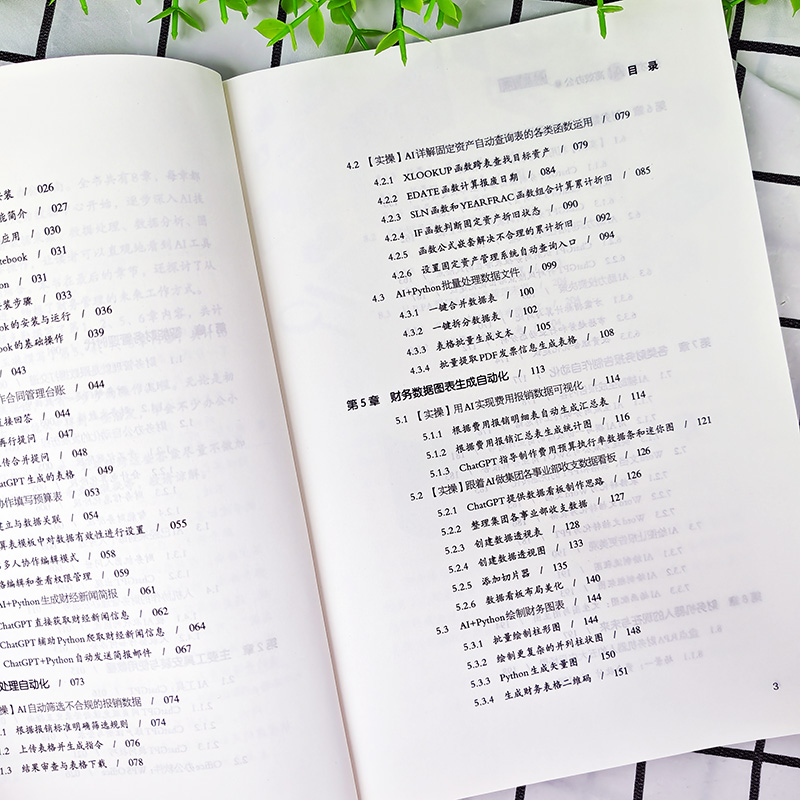 安装 / 026
能简介 / 027
应用 / 030
tebook / 031
on / 031
安装步骤 / 033
ook的安装与运行 / 036
ok的基础操作 / 039
/ 043
作合同管理台账 / 044
直接回答 / 044
再行提问 / 047
传合并提问 / 048
GPT生成的表格 / 049
协作填写预算表 / 053
建立与数据关联 / 054
算表模板中对数据有效性进行设置 / 055
多人协作编辑模式 / 058
格编辑和查看权限管理 / 059
AI+Python生成财经新闻简报 / 061
ChatGPT直接获取财经新闻信息 / 062
ChatGPT辅助Python爬取财经新闻信息 / 064
ChatGPT+Python自动发送简报邮件 / 067
处理自动化 / 073
操】AI自动筛选不合规的报销数据 / 074
.1 根据报销标准明确筛选规则 / 074
1.2 上传表格并生成指令 / 076
1.3 结果审查与表格下载 / 078
目 录
4.2 【实操】AI详解固定资产自动查询表的各类函数运用 / 079
4.2.1 XLOOKUP函数跨表查找目标资产 / 079
4.2.2 EDATE函数计算报废日期 / 084
4.2.3 SLN函数和YEARFRAC函数组合计算累计折旧 / 085
4.2.4 IF函数判断固定资产折旧状态 / 090
4.2.5 函数公式嵌套解决不合理的累计折旧 / 092
4.2.6 设置固定资产管理系统自动查询入口 / 094
4.3 AI+Python批量处理数据文件 / 099
4.3.1 一键合并数据表 / 100
4.3.2 一键拆分数据表 / 102
4.3.3 表格批量生成文本 / 105
4.3.4 批量提取PDF发票信息生成表格 / 108
第5章 财务数据图表生成自动化 / 113
5.1 【实操】用AI实现费用报销数据可视化 / 114
5.1.1 根据费用报销明细表自动生成汇总表 / 114
5.1.2 根据费用报销汇总表生成统计图 / 116
5.1.3 ChatGPT指导制作费用预算执行率数据条和迷你图 / 121
5.2 【实操】跟着AI做集团各事业部收支数据看板 / 126
5.2.1 ChatGPT提供数据看板制作思路 / 126
5.2.2 整理集团各事业部收支数据 / 127
5.2.3 创建数据透视表 / 128
5.2.4 创建数据透视图 / 133
5.2.5 添加切片器 / 135
5.2.6 数据看板布局美化 / 140
5.3 AI+Python绘制财务图表 / 144
5.3.1 批量绘制柱形图 / 144
5.3.2 绘制更复杂的并列柱状图 / 148
5.3.3 Python生成矢量图 / 150
5.3.4 生成财务表格二维码 / 151
3